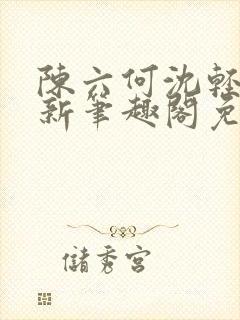 陳六何沈輕
新筆趣閣免
儲秀宮